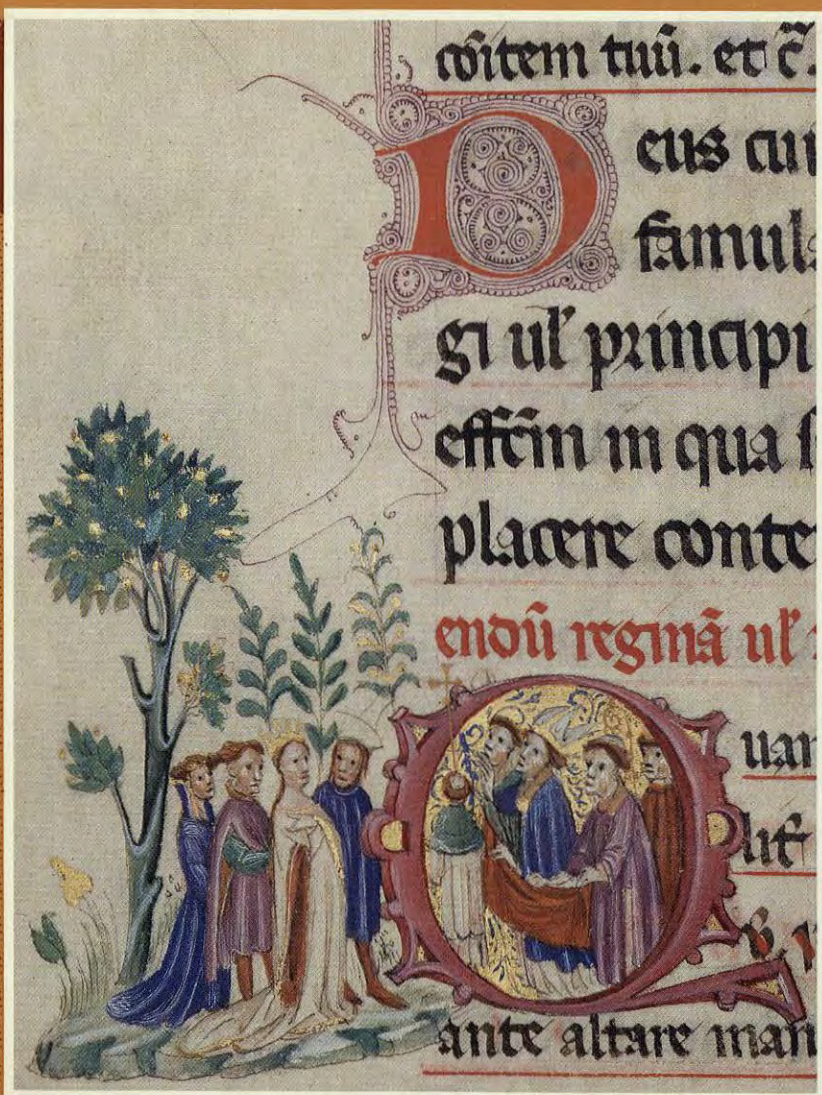 cōitem tuū. et c̄.
Deus cui
famul
gi ul̓ principi
effēm in qua
placere conte
endū reginā ul̓
Quan
lit̄
ante altare man